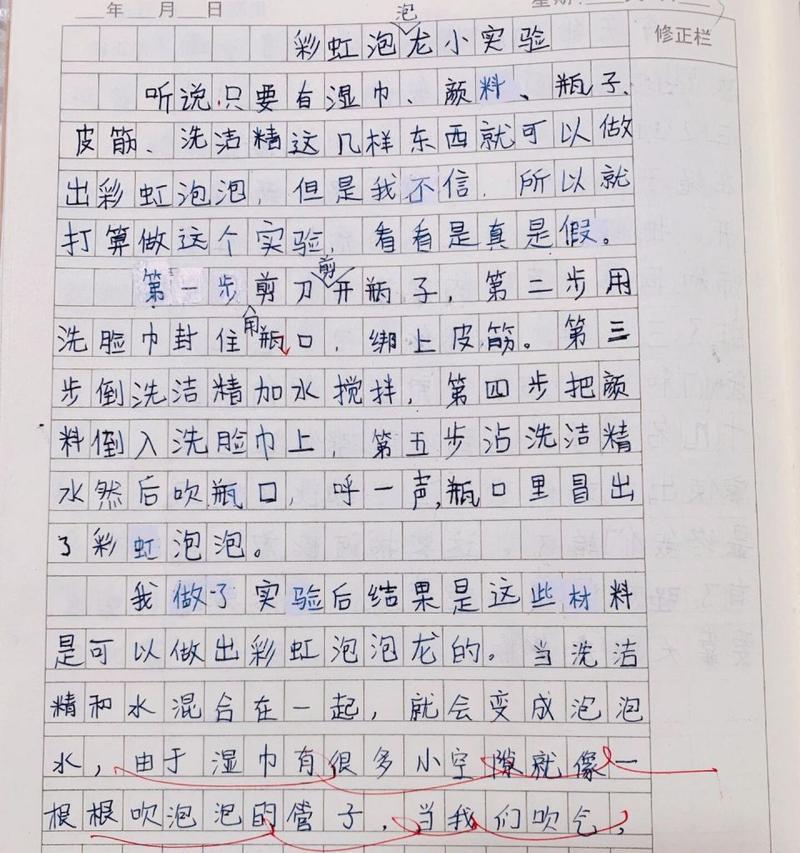 年 月 日
彩虹泡泡龙小实验
修正栏
听说,只要有湿巾、颜料、瓶子、
皮筋、洗洁精这几样东西就可以做
出彩虹泡泡,但是我不信,所以就
打算做这个实验,看看是真是假。
第一步剪刀剪开瓶子,第二步用
洗脸巾封住瓶口,绑上皮筋。第三
步倒洗洁精加水搅拌,第四步把颜
料倒入洗脸巾上,第五步沾洗洁精
水然后吹瓶口,呼一声,瓶口里冒出
了彩虹泡泡。
我做了实验后结果是这些材料
是可以做出彩虹泡泡龙的。当洗洁
精和水混合在一起,就会变成泡泡
水,由于湿巾有很多小空隙就像一
根根吹泡泡的管子,当我们吹气,